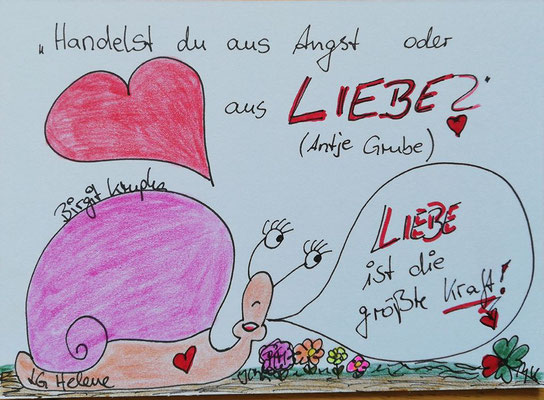 „Handelst du aus Angst oder
aus LIEBE?“
(Antje Grube)
Birgit Krupka
LIEBE
ist die
größte Kraft!
LG Helene